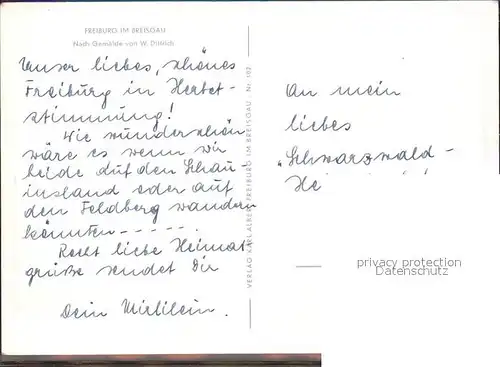 FREIBURG IM BREISGAU
Nach Gemälde von W. Dittrich
Unser liebes, schönes
Freiburg in Herbst-
stimmung!
Wie wunderschön
wäre es wenn wir
beide auf den Schau-
insland oder auf
den Feldberg wandern
könnten - - - - -.
Recht liebe Heimat
grüße sendet Dir
Dein
VERLAG KARL ALBER FREIBURG IM BREISGAU Nr. 102
An mein
liebes
"Schwarzwald-
He
privacy protection
Datenschutz